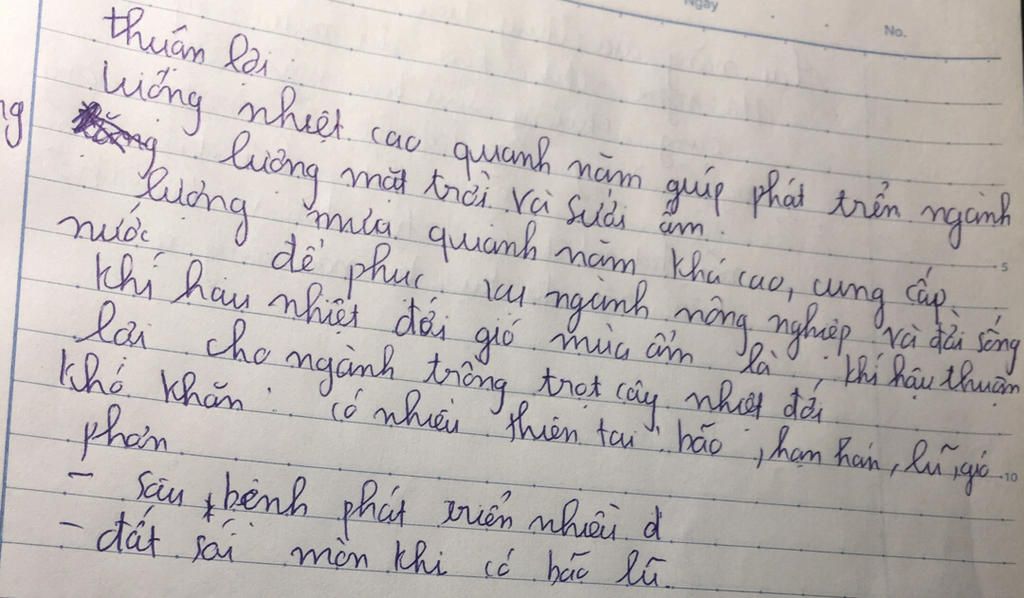 Ngày
No.
thuấn lời
lượng nhiệt cao quanh năm giúp phát triển ngành
ng lượng mặt trời và sưởi ấm.
lượng mưa quanh năm khá cao, cung cấp
nước để phục vụ ngành nông nghiệp và đời sống
khí hậu nhiệt đới gió mùa ẩm là khí hậu thuận
lời cho ngành trồng trọt cây nhiệt đới
khó khăn: có nhiều thiên tai bão, hạn hán, lũ, gió
phơn
- sâu, bệnh phát triển nhiều đ
- đất sói mòn khi có bão lũ
5
10
ng